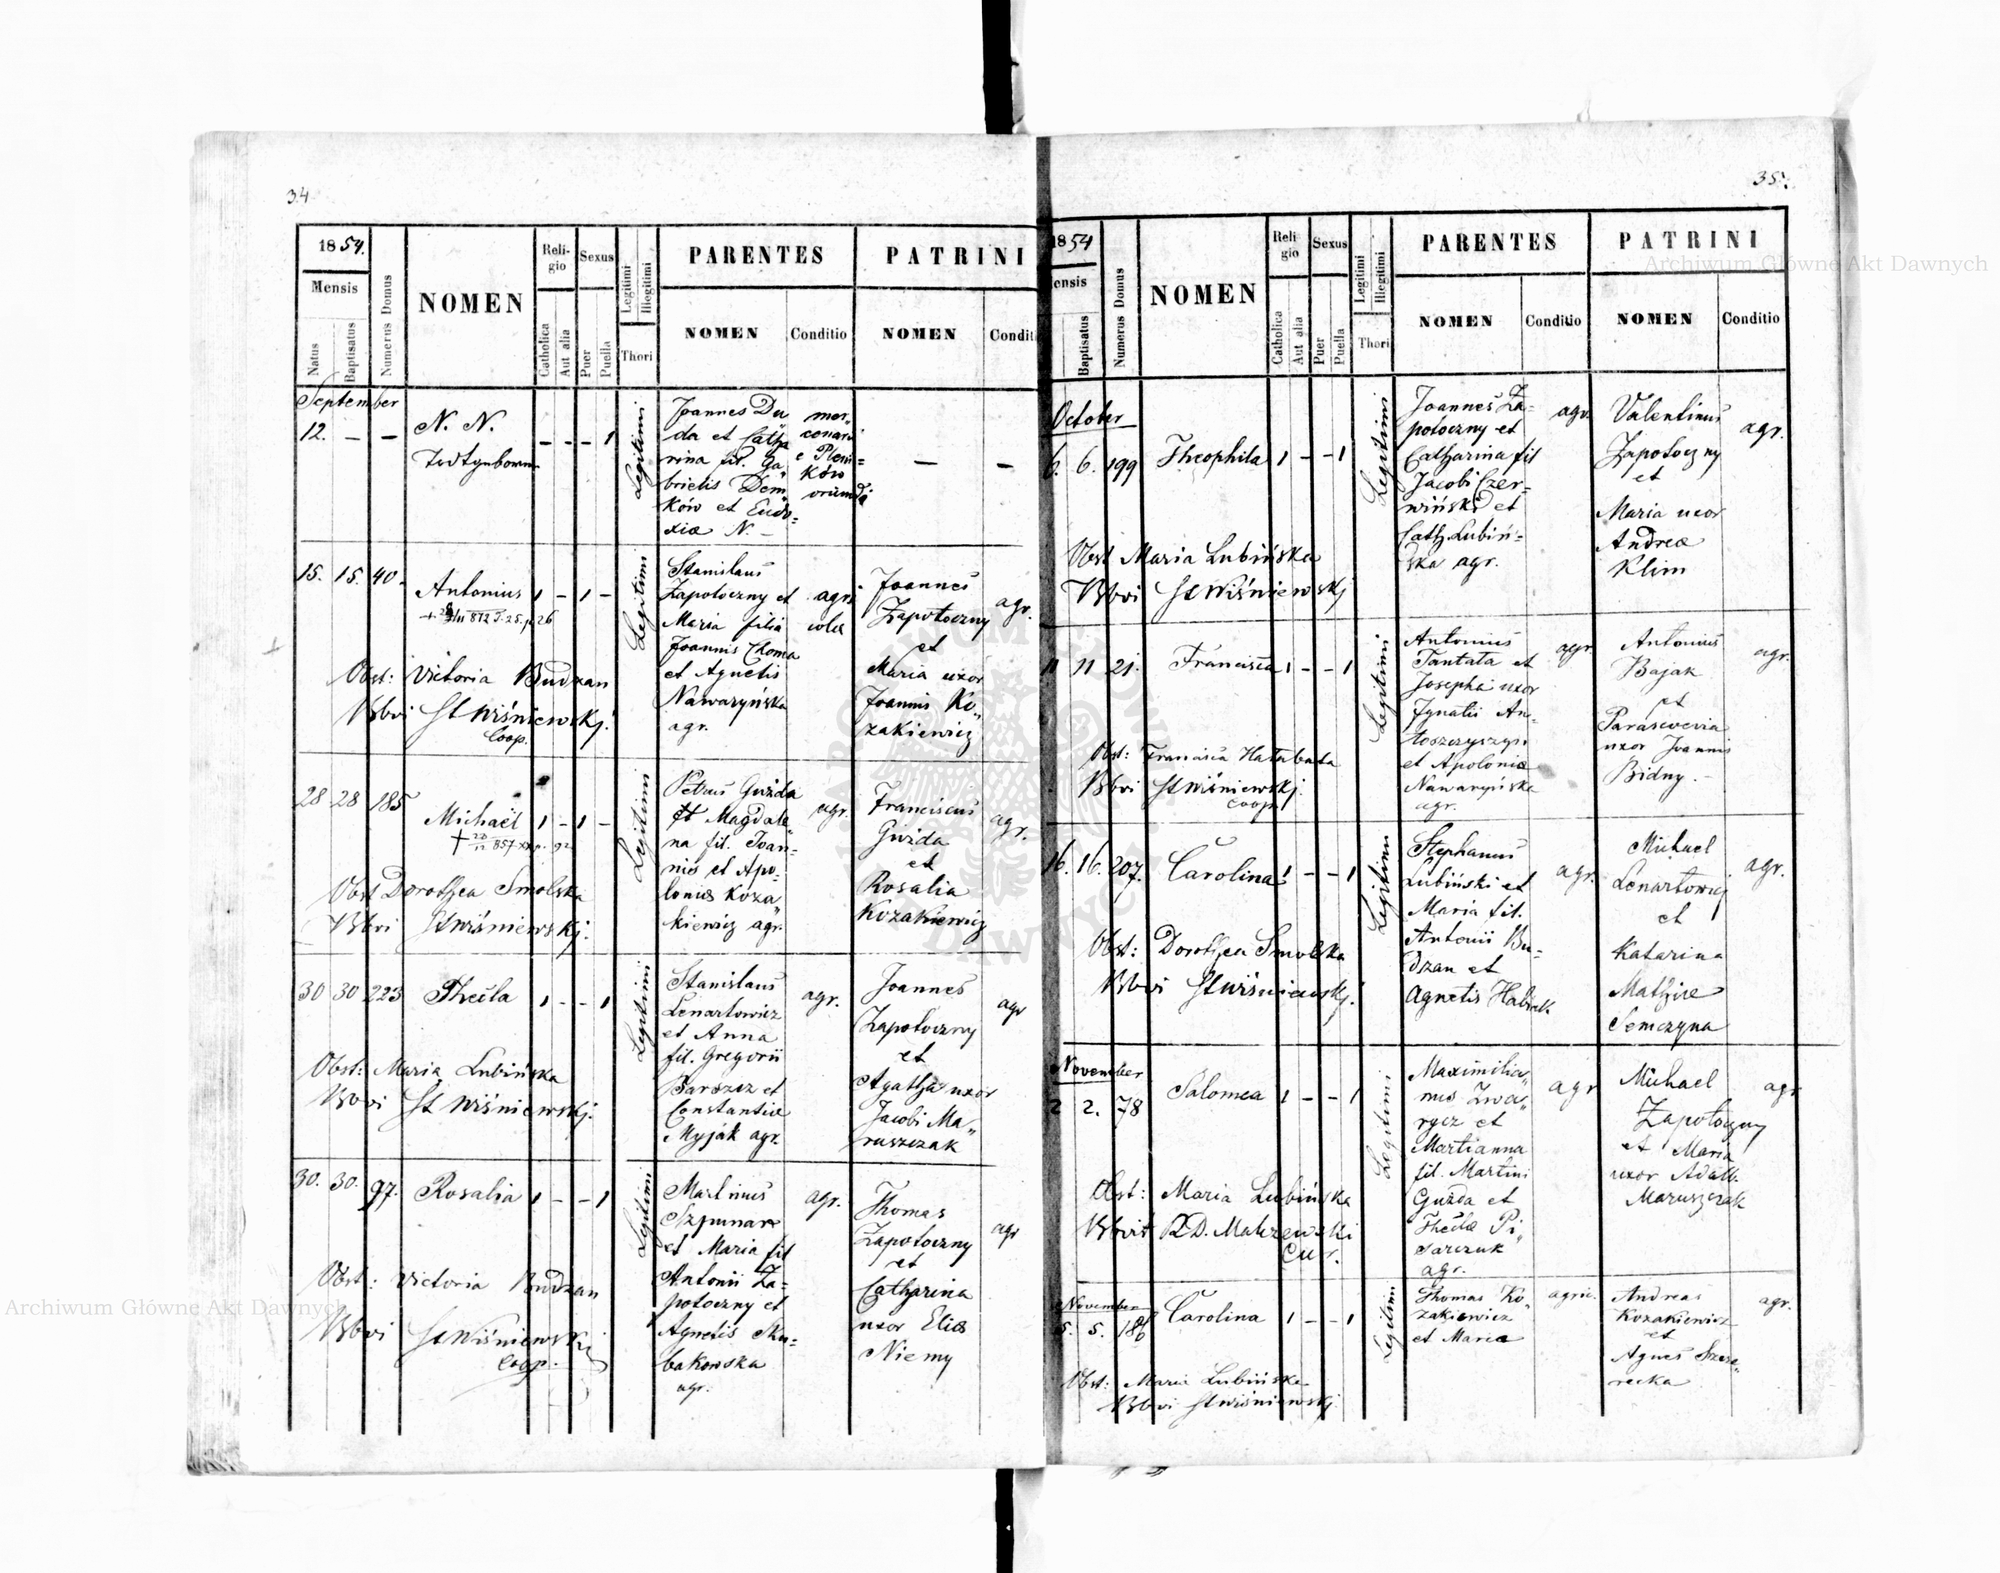 34
1854.
Mensis
Natus
Baptisatus
Numerus Domus
NOMEN
Reli-
gio
Catholica
Aut alia
Sexus
Puer
Puella
Legitimi
Illegitimi
Thori
PARENTES
NOMEN
Conditio
PATRINI
NOMEN
Conditi
September
12. — —
N. N.
- - - 1
Legitimi
Joannes Du
da et Catha
rina fil. Ga„
brielis Dem
ków et Eudo=
xiæ N. —
mer„
conari
e Pleni=
ków
oriundi
— —
15. 15. 40.
Antonius 1 - 1 -
Obst: Victoria Budzan
Bbvi St Wiśniewskj.
Coop.
Legitimi
Stanislaus
Zapotoczny et
Maria filia
Joannis Choma
et Agnetis
Nawaryńska
agr.
agri
colæ
Joannes
Zapotoczny
et
Maria uxor
Joannis Ko„
zakiewicz
agr.
28 28 185
Michaël 1 - 1 -
Obst Dorothea Smolska
Bbvi St Wiśniewskj.
Legitimi
Petrus Guzda
et Magdale„
na fil. Joan-
nis et Apo-
loniæ Koza
kiewicz agr.
agr.
Franciscus
Gwizda
et
Rosalia
Kozakiewicz
agr.
30 30 223
Thecla 1 - - 1
Obst: Maria Lubińska
Bbvi St Wiśniewskj.
Legitimi
Stanislaus
Lenartowicz
et Anna
fil. Gregorii
Barszcz et
Constantiæ
Myjak agr.
agr.
Joannes
Zapotoczny
et
Agatha uxor
Jacobi Ma„
ruszczak
agr
30. 30. 97.
Rosalia 1 - - 1
Obst: Victoria Budzan
Bbvi St Wiśniewskj
Coop.
Legitimi
Martinus
Szpunar
et Maria fil
Antonii Za-
potoczny et
Agnetis Sku-
bakowska
agr.
agr.
Thomas
Zapotoczny
et
Catharina
uxor Eliæ
Niemy
agr
35.
1854
ensis
Baptisatus
Numerus Domus
NOMEN
Reli
gio
Catholica
Aut alia
Sexus
Puer
Puella
Legitimi
Illegitimi
Thori
PARENTES
NOMEN
Conditio
PATRINI
NOMEN
Conditio
October
6. 6. 199
Theophila 1 - - 1
Obst Maria Lubińska
Bbvi St Wiśniewskj
Legitimi
Joannes Za-
potoczny et
Catharina fil
Jacobi Czer-
wiński et
Cath. Lubiń-
ska agr.
agr.
Valentinus
Zapotoczny
et
Maria uxor
Andreæ
Klim
agr.
11 11 21.
Francisca 1 - - 1
Obst: Francisca Hatabata
Bbvi St Wiśniewskj.
Coop.
Legitimi
Antonius
Tantata et
Josepha uxor
Ignatii An-
toszczyszyn
et Apoloniæ
Nawaryńska
agr.
agr.
Antonius
Bajak
et
Parascevia
uxor Joannis
Bidny. —
agr.
16. 16. 207.
Carolina 1 - - 1
Obst: Dorothea Smolska
Bbvi St Wiśniewskj.
Legitimi
Stephanus
Lubiński et
Maria fil.
Antonii Bu-
dzan et
Agnetis Habiak
agr.
Michael
Lenartowicz
et
Katarina
Mathiæ
Semczyna
agr.
November
2 2. 78
Salomea 1 - - 1
Obst: Maria Lubińska
Bbvit R.D. Makzewski
Cur.
Legitimi
Maximilia„
nus Zwa„
rycz et
Martianna
fil. Martini
Guzda et
Theclæ Pi„
sarczuk
agr.
agr
Michael
Zapotoczny
et Maria
uxor Adalb.
Maruszczak
agr
November
5. 5. 186
Carolina 1 - - 1
Obst: Maria Lubińska
Bbvi St Wiśniewskj
Legitimi
Thomas Ko-
zakiewicz
et Maria
agric.
Andreas
Kozakiewicz
et
Agnes Szere„
recka
agr.
Archiwum Główne Akt Dawnych
Archiwum Główne Akt Dawnych